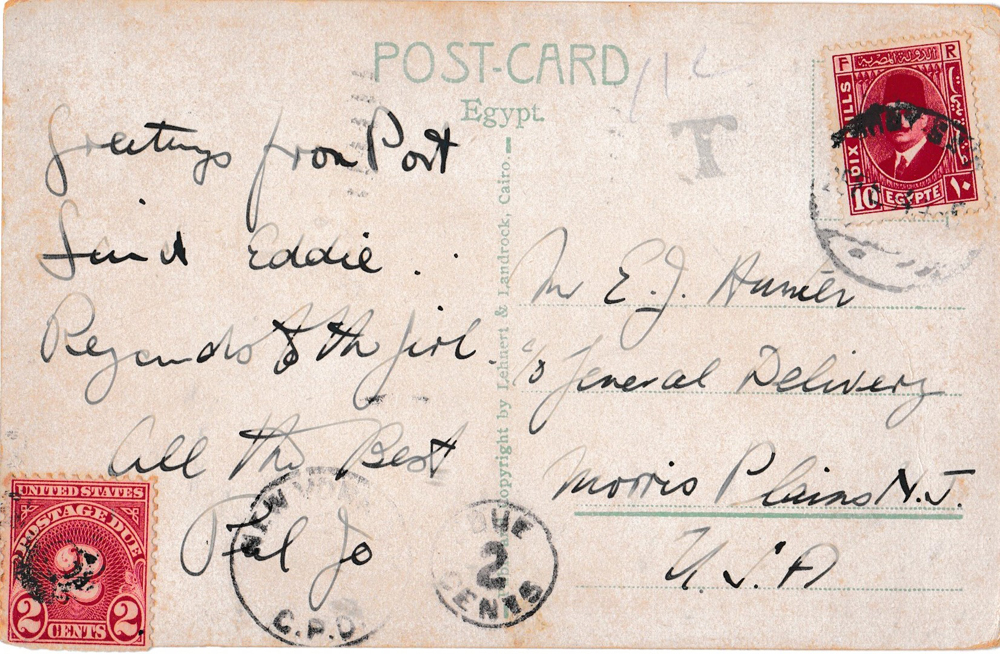 POST-CARD
Egypt
T
Greetings from Port
Said Eddie . .
Regards to the girl.
All the Best
Pal Jo
Mr E. J. Hunter
c/o General Delivery
Morris Plains N.J.
U.S.A
Copyright by Lehnert & Landrock, Cairo.
F R
DIX MILLS
10 EGYPTE ١٠
UNITED STATES
POSTAGE DUE
2
2 CENTS 2
NEW YORK
C.P.D.
DUE
2
CENTS